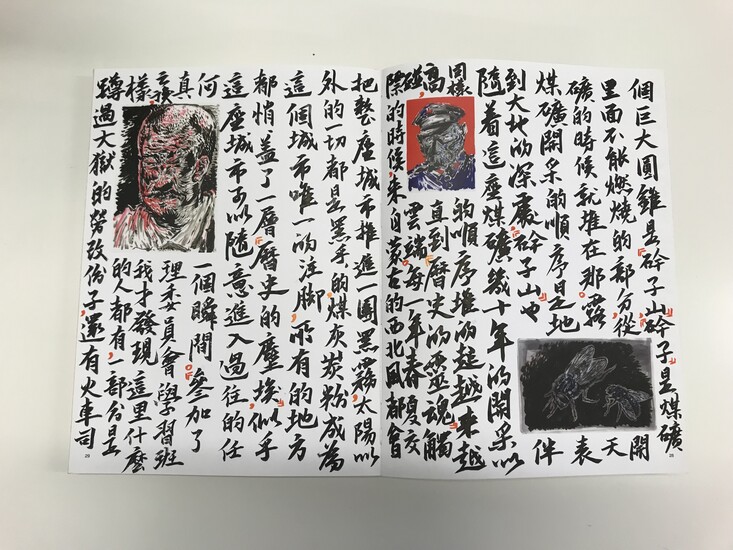 個巨大圓錐是矸子山。矸子是煤礦
里面不能燃燒的部分,從開
礦的時候就堆在那。露天
煤礦開采的順序是地表
到大地的深處。矸子山也伴
隨着這座煤礦幾十年的開采以
同樣的順序堆的越來越
高,直到曆史的靈魂觸
碰雲端。每一年春夏交
際的時候,來自蒙古的西北風都會
把整座城市推進一團黑霧,太陽以
外的一切都是黑乎的,煤灰炭粉成為
這個城市唯一的注脚,所有的地方
都悄盖了一層曆史的塵埃,似乎
這座城市可以隨意進入過往的任
何一個瞬間。參加了
真理委員會學習班
我才發現這里什麼
樣的人都有,一部分是
蹲過大獄的勞改份子,還有火車司
29
25